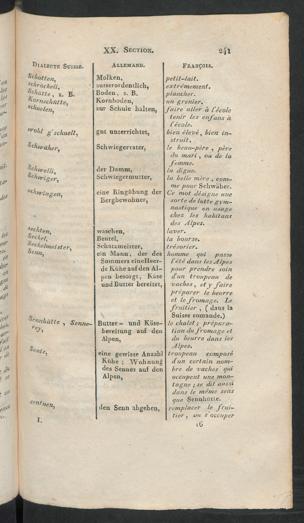 XX. Section. 241
Dialecte Suisse. Allemand. Français.
Schotten, Molken, petit-lait.
schröcheli, ausserordentlich, extrêmement.
Schütte, s. B. Boden, s. B. plancher.
Kornschütte, Kornboden, un grenier.
schuelen, zur Schule halten, faire aller à l'école
tenir les enfans à
l'école.
wohl g'schuelt, gut unterrichtet, bien élevé, bien in-
struit.
Schwaher, Schwiegervater, le beau-père, père
du mari, ou de la
femme.
Schwelli, der Damm, la digue.
Schwiger, Schwiegermutter, la belle mère, com-
me pour Schwäher.
schwingen, eine Ringübung der Ce mot désigne une
Bergbewohner, sorte de lutte gym-
nastique en usage
chez les habitant
des Alpes.
sechten, waschen, laver.
Seckel, Beutel, la bourse.
Seckelmeister, Schatzmeister, trésorier.
Senn, ein Mann, der des homme qui passe
Sommers eine Heer- l'été dans les Alpes
de Kühe auf den Al- pour prendre soin
pen besorgt, Käse d'un troupeau de
und Butter bereitet, vaches, et y faire
préparer le beurre
et le fromage. Le
fruitier, (dans la
Suisse romande.)
Sennhütte, Senne- Butter- und Käse- le chalet; prépara-
rey, bereitung auf den tion du fromage et
Alpen, du beurre dans les
Alpes.
Sente, eine gewisse Anzahl troupeau composé
Kühe; Wohnung d'un certain nom-
des Sennes auf den bre de vaches qui
Alpen, occupent une mon-
tagne; se dit aussi
dans le même sens
que Sennhütte.
sentnen, den Senn abgeben, remplacer le frui-
tier, ou s'occuper
I. 16